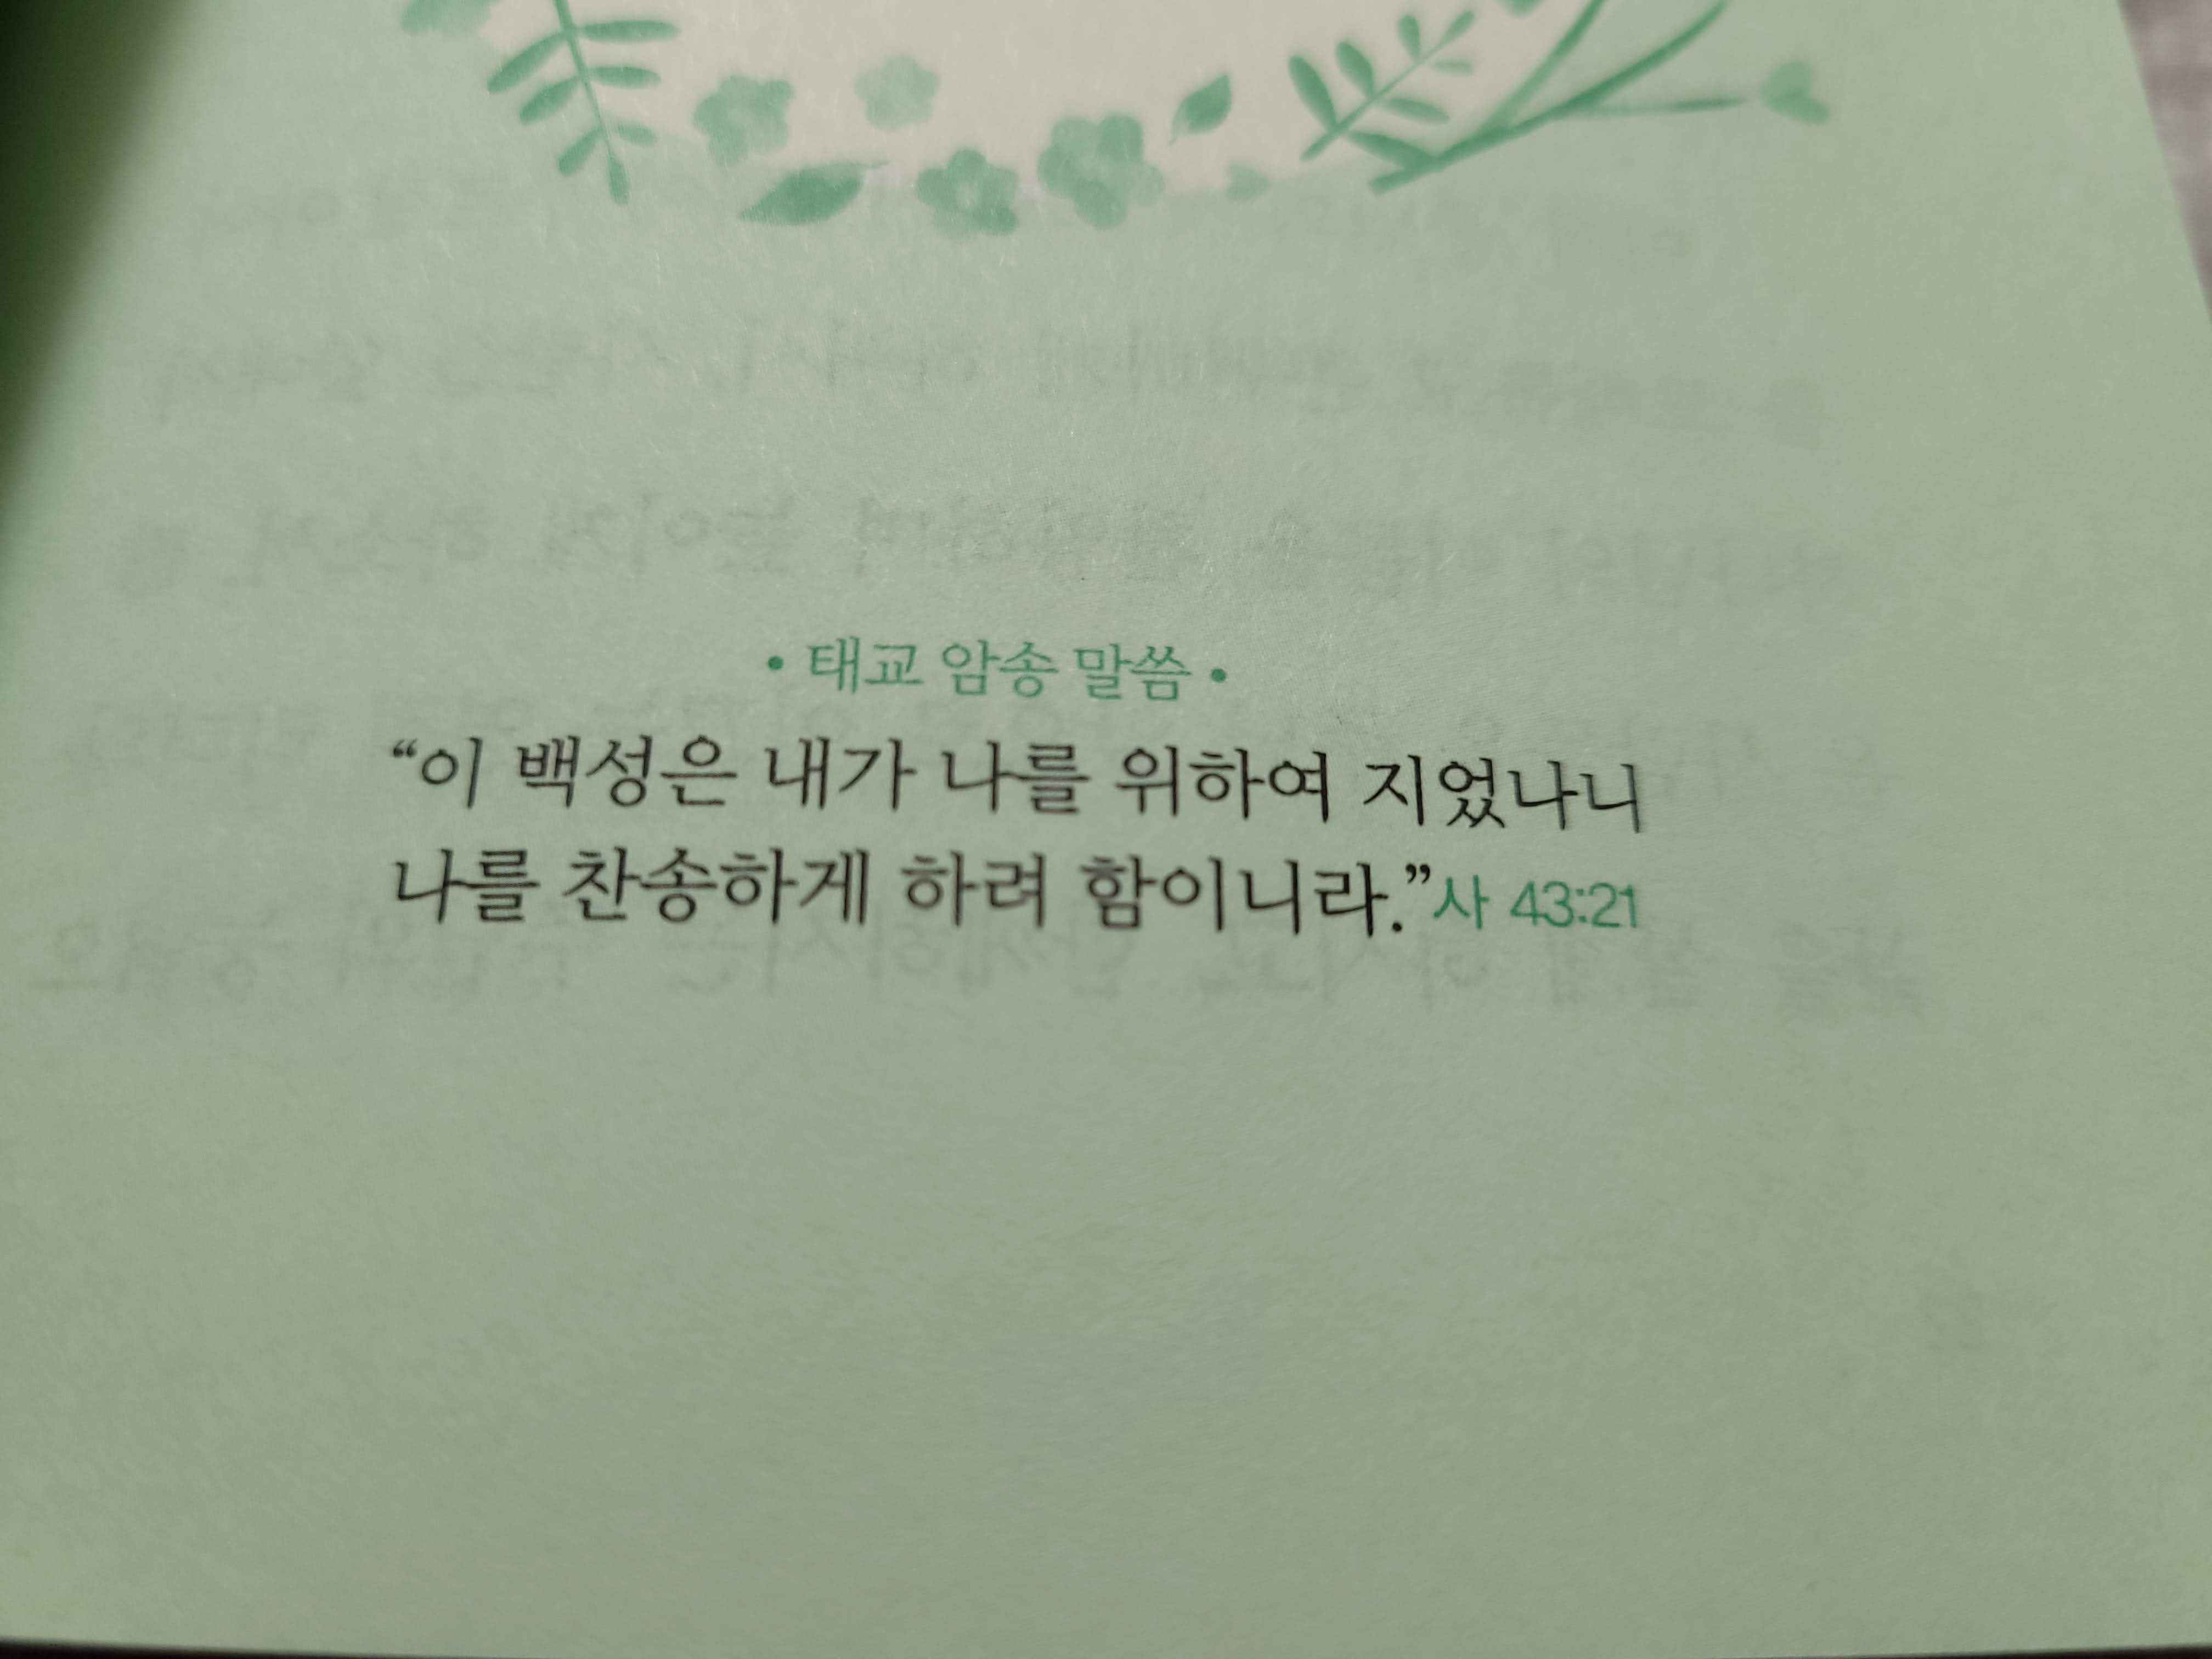 • 태교 암송 말씀 •
“이 백성은 내가 나를 위하여 지었나니
나를 찬송하게 하려 함이니라.”사 43:21